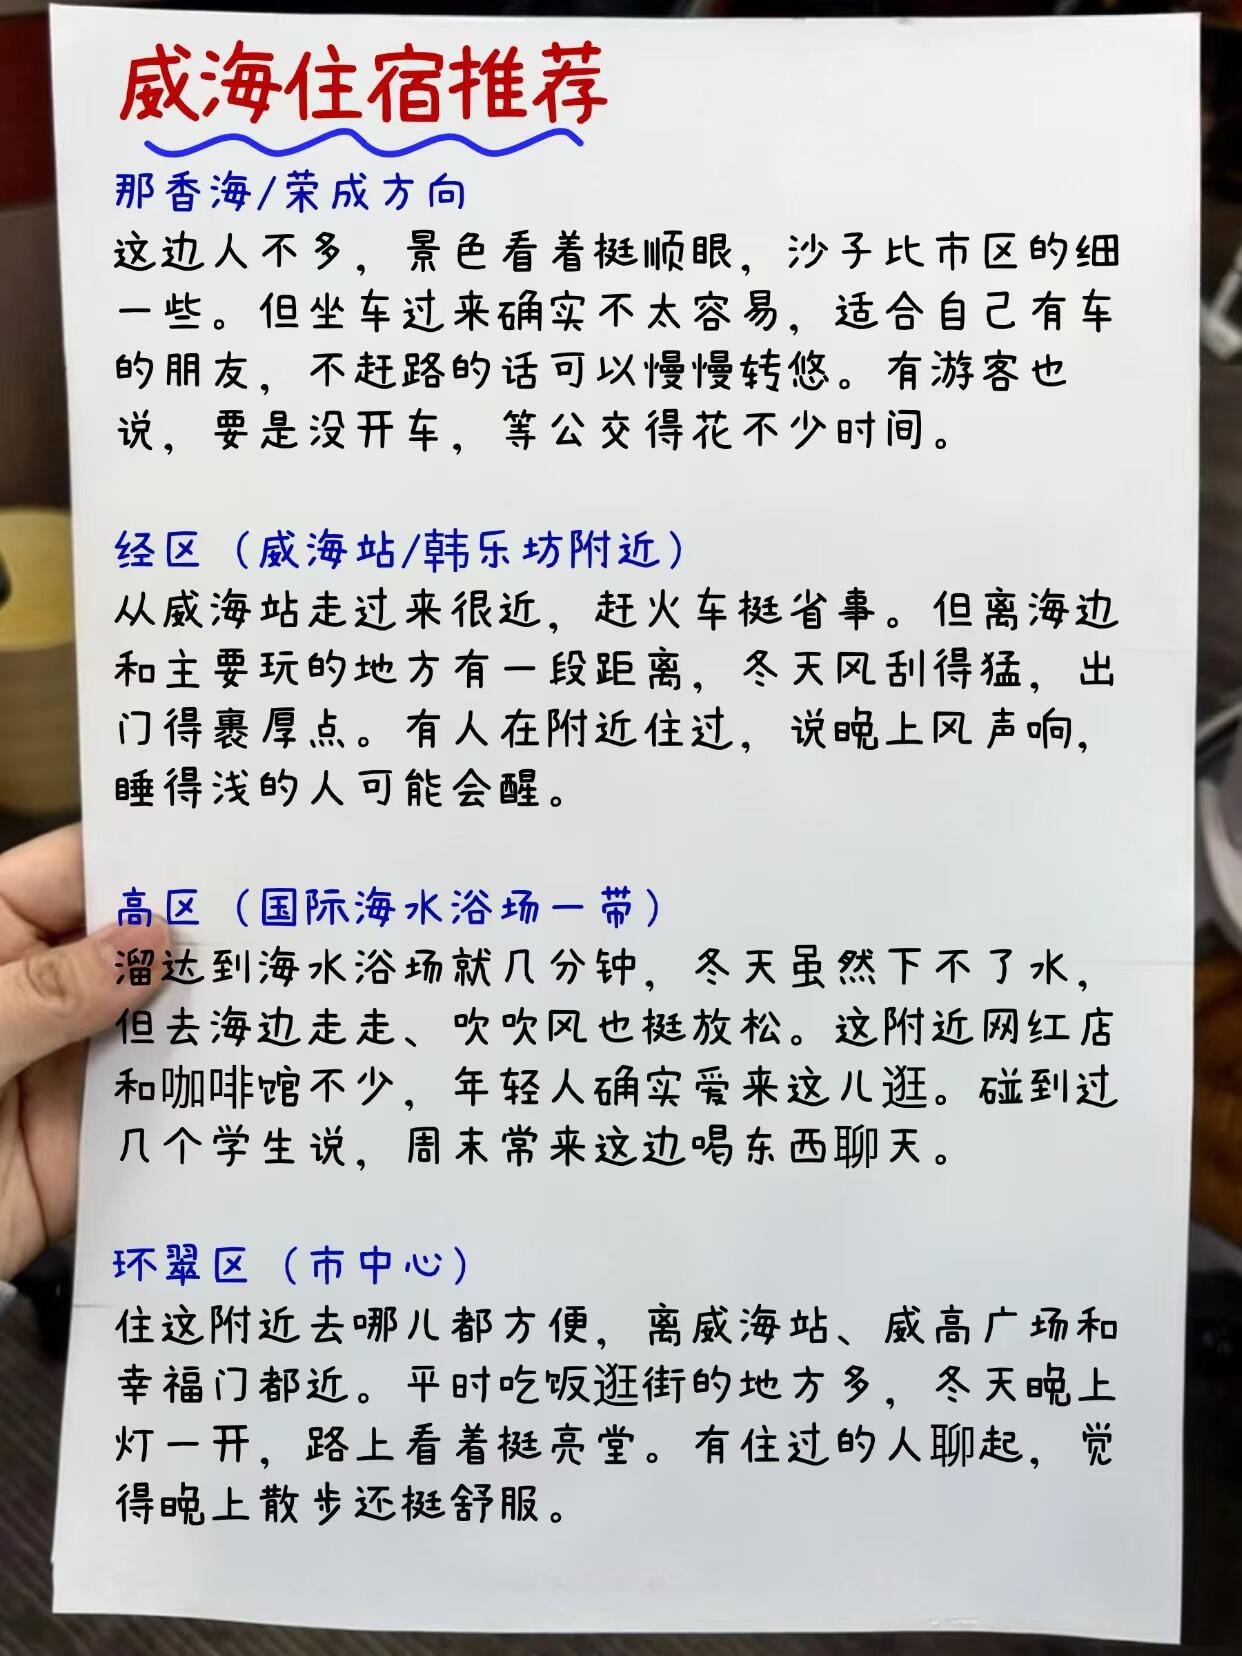 威海住宿推荐
那香海/荣成方向
这边人不多，景色看着挺顺眼，沙子比市区的细
一些。但坐车过来确实不太容易，适合自己有车
的朋友，不赶路的话可以慢慢转悠。有游客也
说，要是没开车，等公交得花不少时间。
经区（威海站/韩乐坊附近）
从威海站走过来很近，赶火车挺省事。但离海边
和主要玩的地方有一段距离，冬天风刮得猛，出
门得裹厚点。有人在附近住过，说晚上风声响，
睡得浅的人可能会醒。
高区（国际海水浴场一带）
溜达到海水浴场就几分钟，冬天虽然下不了水，
但去海边走走、吹吹风也挺放松。这附近网红店
和咖啡馆不少，年轻人确实爱来这儿逛。碰到过
几个学生说，周末常来这边喝东西聊天。
环翠区（市中心）
住这附近去哪儿都方便，离威海站、威高广场和
幸福门都近。平时吃饭逛街的地方多，冬天晚上
灯一开，路上看着挺亮堂。有住过的人聊起，觉
得晚上散步还挺舒服。